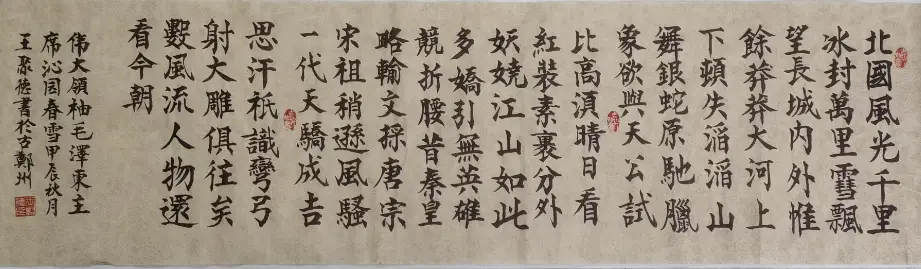 北國風光千里
冰封萬里雪飄
望長城內外惟
餘莽莽大河上
下頓失滔滔山
舞銀蛇原馳臘
象欲與天公試
比高湏晴日看
紅裝素裹分外
妖娆江山如此
多嬌引無英雄
競折腰昔秦皇
略輸文採唐宗
宋祖稍遜風騷
一代天驕成吉
思汗祇識彎弓
射大雕俱往矣
數風流人物還
看今朝
伟大領袖毛澤東主
席沁园春雪甲辰秋月
王聚俭書於古鄭州